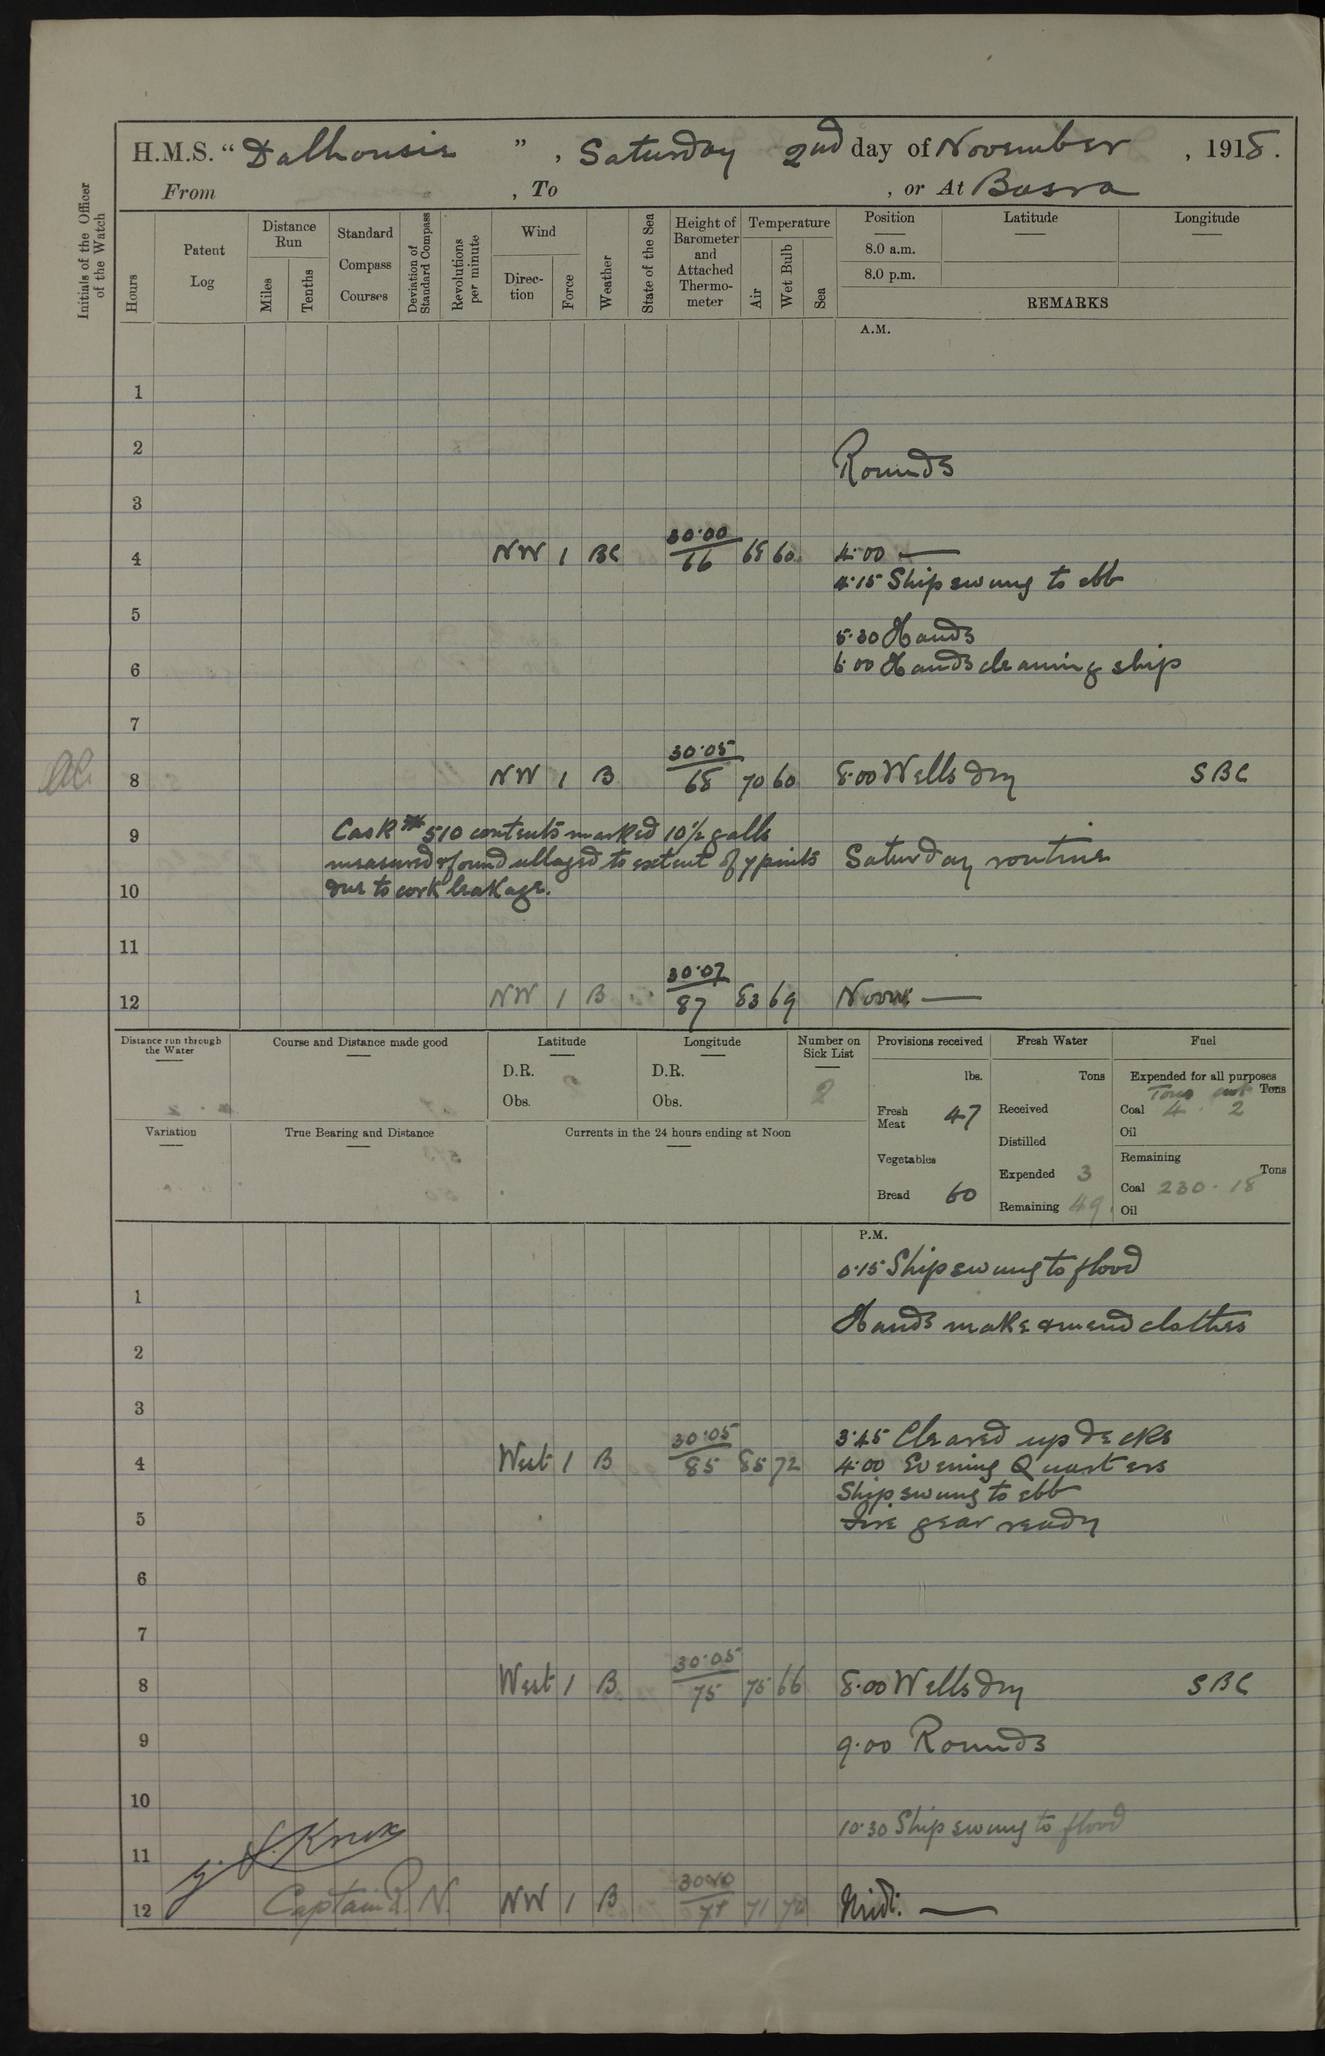 H.M.S. “Dalhousie”, Saturday 2nd day of November, 1918.
From , To , or At Basra
Initials of the Officer of the Watch
Hours
Patent Log
Distance Run
Miles
Tenths
Standard Compass Courses
Deviation of Standard Compass
Revolutions per minute
Wind
Direction
Force
Weather
State of the Sea
Height of Barometer and Attached Thermometer
Temperature
Air
Wet Bulb
Sea
Position
8.0 a.m.
8.0 p.m.
Latitude
Longitude
REMARKS
A.M.
1
2
Rounds
3
4 NW 1 BC 30·00 66 68 60 4·00 —
4·15 Ship swung to ebb
5
5·30 Hands
6·00 Hands cleaning ship
6
7
8 NW 1 B 30·05 68 70 60 8·00 Wells dry SBC
9
Cask No 510 contents marked 10½ galls
measured & found ullaged to extent of 7 pints
due to cork leakage.
Saturday routine
10
11
12 NW 1 B 30·07 87 83 69 Noon: —
Distance run through the Water
Course and Distance made good
Latitude
D.R.
Obs.
Longitude
D.R.
Obs.
Number on Sick List
2
Provisions received
lbs.
Fresh Meat 47
Vegetables
Bread 60
Fresh Water
Tons
Received
Distilled
Expended 3
Remaining 49
Fuel
Expended for all purposes
Tons
Tons cwt
Coal 4 · 2
Oil
Remaining
Tons
Coal 230 · 18
Oil
Variation
True Bearing and Distance
Currents in the 24 hours ending at Noon
P.M.
0·15 Ship swung to flood
1
Hands make & mend clothes
2
3
3·45 Cleared up decks
4 West 1 B 30·05 85 85 72 4·00 Evening Quarters
Ship swung to ebb
5
Fire gear ready
6
7
8 West 1 B 30·05 75 75 66 8·00 Wells dry SBC
9
9·00 Rounds
10
10·30 Ship swung to flood
11
Knox
Captain R.N.
12 NW 1 B 71 Midt: —